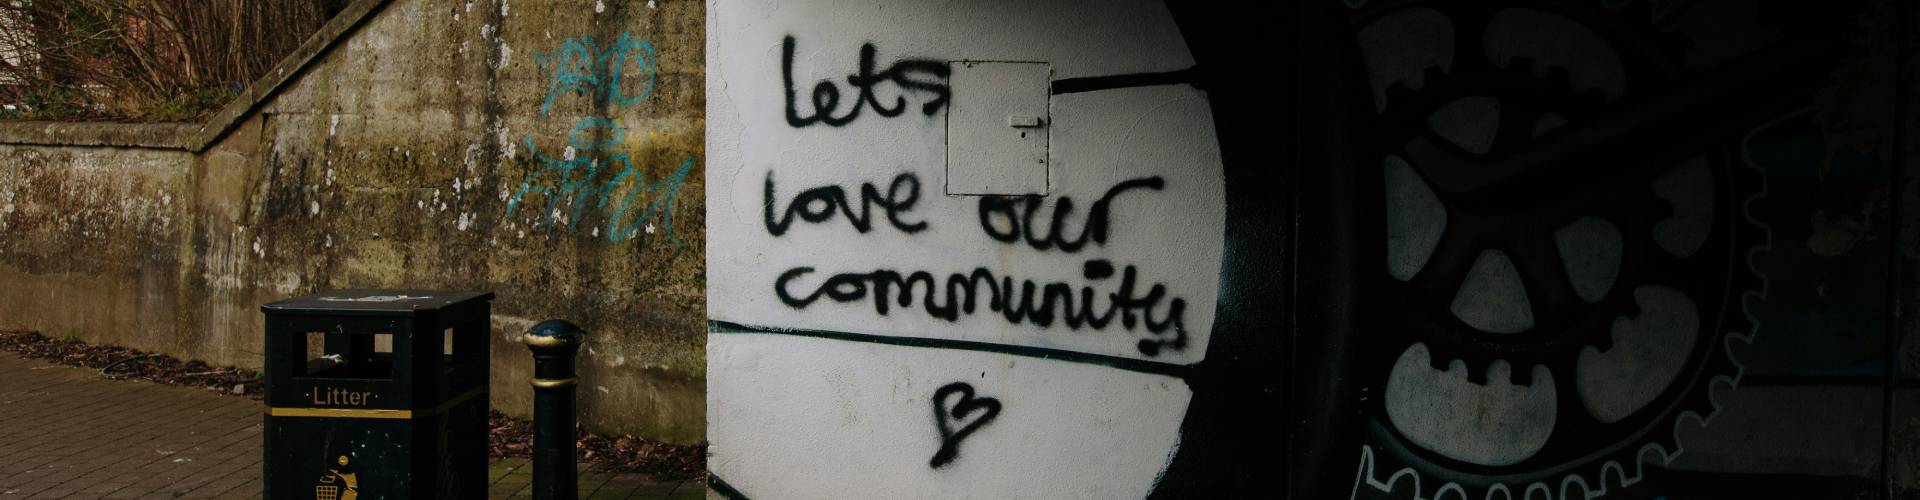 Litter
Lets
love our
community